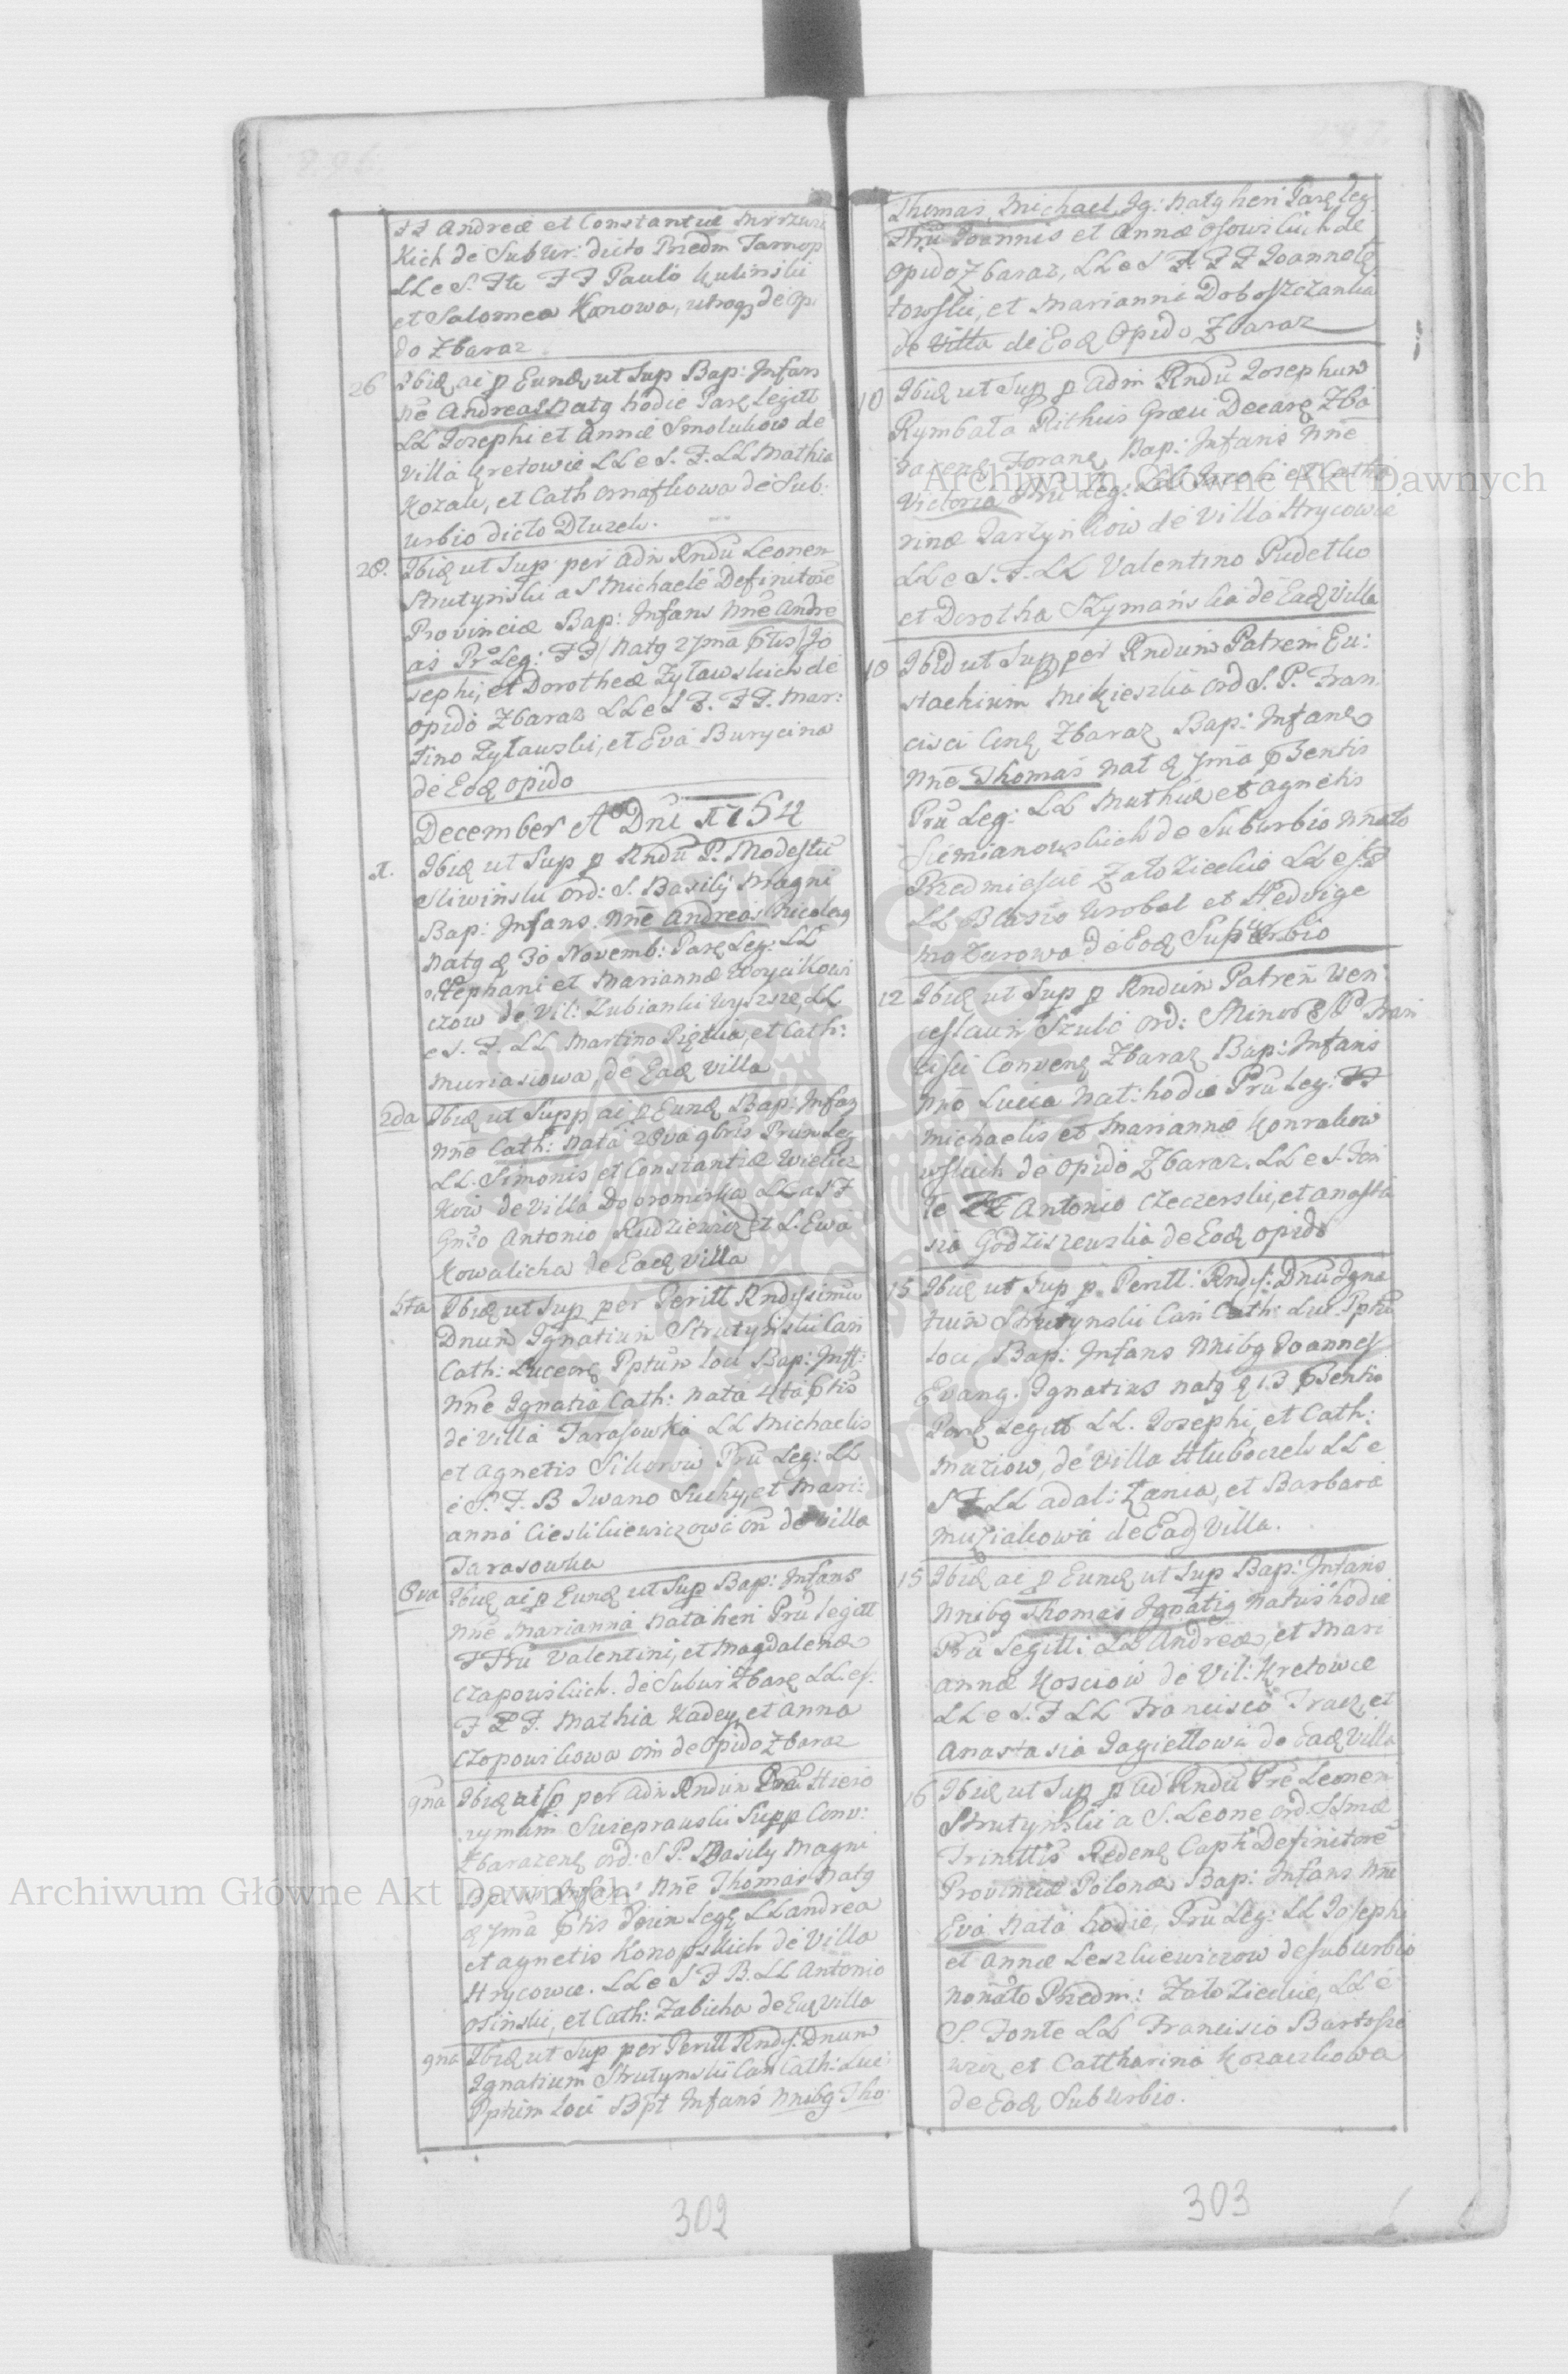 FF Andreæ et Constantiæ Mrozow
Kich de Subur: dicto Przedm Tarnop
LL e S. Fte FF Paulo Kulinski
et Salomea Konowa, utroq3 de Opi
do Zbaraz
26 Ibiq ai p Eunq ut Sup Bap: Infans
nne Andreas Natq hodie Parē legitt
LL Josephi et Annæ Smolukow de
Villa Kretowie LL e S. F. LL Mathia
Kozak, et Cath Ornafkowa de Sub:
urbio dicto Dluzek.
28. Ibiq ut Sup per Adm Rndu Leonem
Strutynski a S Michaele Definitore
Provinciæ Bap: Infans Nne Andre
as Pr Leg: FF/ Natq 27ma ptis/ Jo
sephi, et Dorotheæ Zytawskich de
opido Zbaraz LL e S F. FF. Mar:
tino Zytawski, et Eva Burycina
de Eoq opido
December Ao Dni 1754
1. Ibiq ut Sup p Rndu P. Modestu
Sliwinski Ord: S. Basily Magni
Bap: Infans. Nne Andreas Nicolaq
Natq q 30 Novemb: Parē Leg: LL
Stephani et Mariannæ Woycikowi
czow de Vil: Lubianki Wyzsze, LL
e S. F. LL Martino Piętka, et Cath:
Muriasiowa, de Eaq villa
2da Ibiq ut Supp ai p Eunq Bap: Infans
Nne Cath: Nata 28va 9bris Prum Leg
LL. Simonis et Constantiæ Wielicz
Kow de Villa Dobromirka LL e S F
Gnso Antonio Rudziewicz et L. Ewa
Kowalicha de Eaq Villa
5ta Ibiq ut Sup per Peritt Rndissimu
Dnum Ignatium Strutynski Can
Cath: Luceorē Pptum loci Bap: Inft:
Nne Ignatia Cath: Nata 4ta ptis
de villa Tarasowka LL Michaelis
et Agnetis Sikorow Pru Leg: LL
e S. F. B Iwano Suchy, et Mari:
anna Cieslikiewiczowa on de villa
Tarasowka
8va Ibiq ai p Eunq ut Sup Bap: Infans
Nne Marianna Nata heri Pru legitt
FFru Valentini, et Magdalenæ
Czapowskich. de Subur Zbarē LL. e S.
F F F. Mathia Kadey, et Anna
Czopowikowa om de Opido Zbaraz
9na Ibiq ai p per Adm Rndum Pre Hiero
nymum Sureprawski Supp Conv:
Zbarazenē Ord: S P. Basily Magni
Bpt Infans Nne Thomas Natq
q 7ma ptis Prum Legē LL Andrea
et Agnetis Konopskich de Villa
Hrycowce. LL e S F B. LL Antonio
Osinski, et Cath: Zabicha de Eaq Villa
9na Ibiq ut Sup per Peritt Rndis: Dnum
Ignatium Strutynski Can Cath: Luc:
Pptum loci Bpt Infans Nnibq Tho
Thomas, Michael, Ig: Natq heri Parē leg
FFru Joannis et Annæ Osowskich de
Opido Zbaraz, LL e S F. FF Joanne
towski, et Marianna Doboszczanka
de Villa de Eoq Opido Zbaraz
10 Ibiq ut Sup p Adm Rndu Josephum
Rymbała Rithus Græci Decanē Zba
razenē Foranē Bap: Infans Nne
Victoria Pru Leg: LL Jacobi et Catha
rinæ Jarzynkow de Villa Hrycowce
LL e S. F. LL Valentino Pudetko
et Dorotha Szymanska de Eaq Villa
10 Ibid ut Sup per Rndum Patrem Eu:
stachium Mikieszka Ord S. P. Fran
cisci Cinē Zbaraz Bap: Infans
Nne Thomas Nat q 7ma pSentis
Pru Leg: LL Mathiæ et Agnetis
Siemianowskich de Suburbio Nnato
Przedmiescie Załoziecki LL e S F
LL Blasio Wrobel et Hedvige
Mazurowa de Eoq Suburbio
12 Ibiq ut Sup p Rndum Patrem Ven
ceslaum Szulc Ord: Minor S P Fran
cisci Convenē Zbaraz Bap: Infans
Nne Lucia Nat: hodie Pru Leg: FF
Michaelis et Mariannæ Konrakow
wskich de Opido Zbaraz. LL e S. Fon
te FF Antonio Czeczerski, et Anasta
sia Godziszewska de Eoq Opido
15 Ibiq ut Sup p. Peritt: Rndis: Dnu Igna
tium Strutynski Can Cath: Luc. Pptu
loci, Bap: Infans Nnibq Joannes
Evang. Ignatius Natq q 13 pSentis
Parē Legitt LL. Josephi, et Cath:
Maziow, de Villa Hłuboczek LL e
S F LL Adal: Kania, et Barbara
Muziakowa de Eaq Villa.
15 Ibiq ai p Eunq ut Sup Bap: Infans
Nnibq Thomas Ignatiq Natus hodie
Pru Legitt: LL Andreæ, et Mari
annæ Kosciow de Vil: Kretowce
LL e S. F LL Francisco Tracz, et
Anastasia Jagiettowa de Eaq Villa
16 Ibiq ut Sup p Ad Rndu Pre Leonem
Strutynski a S. Leone Ord. SSmæ
Trinittis Redenē Capti Definitore
Provinciæ Polonæ Bap: Infans Nne
Eva Nata hodie, Pru Leg: LL Josephi
et Annæ Leszkiewiczow de Suburbio
Nonato Przedm: Załoziecki, LL e
S. Fonte LL Francisco Bartosie
wicz et Cattharina Kozaczkowa
de Eoq Suburbio.
302
303
Archiwum Główne Akt Dawnych
Archiwum Główne Akt Dawnych